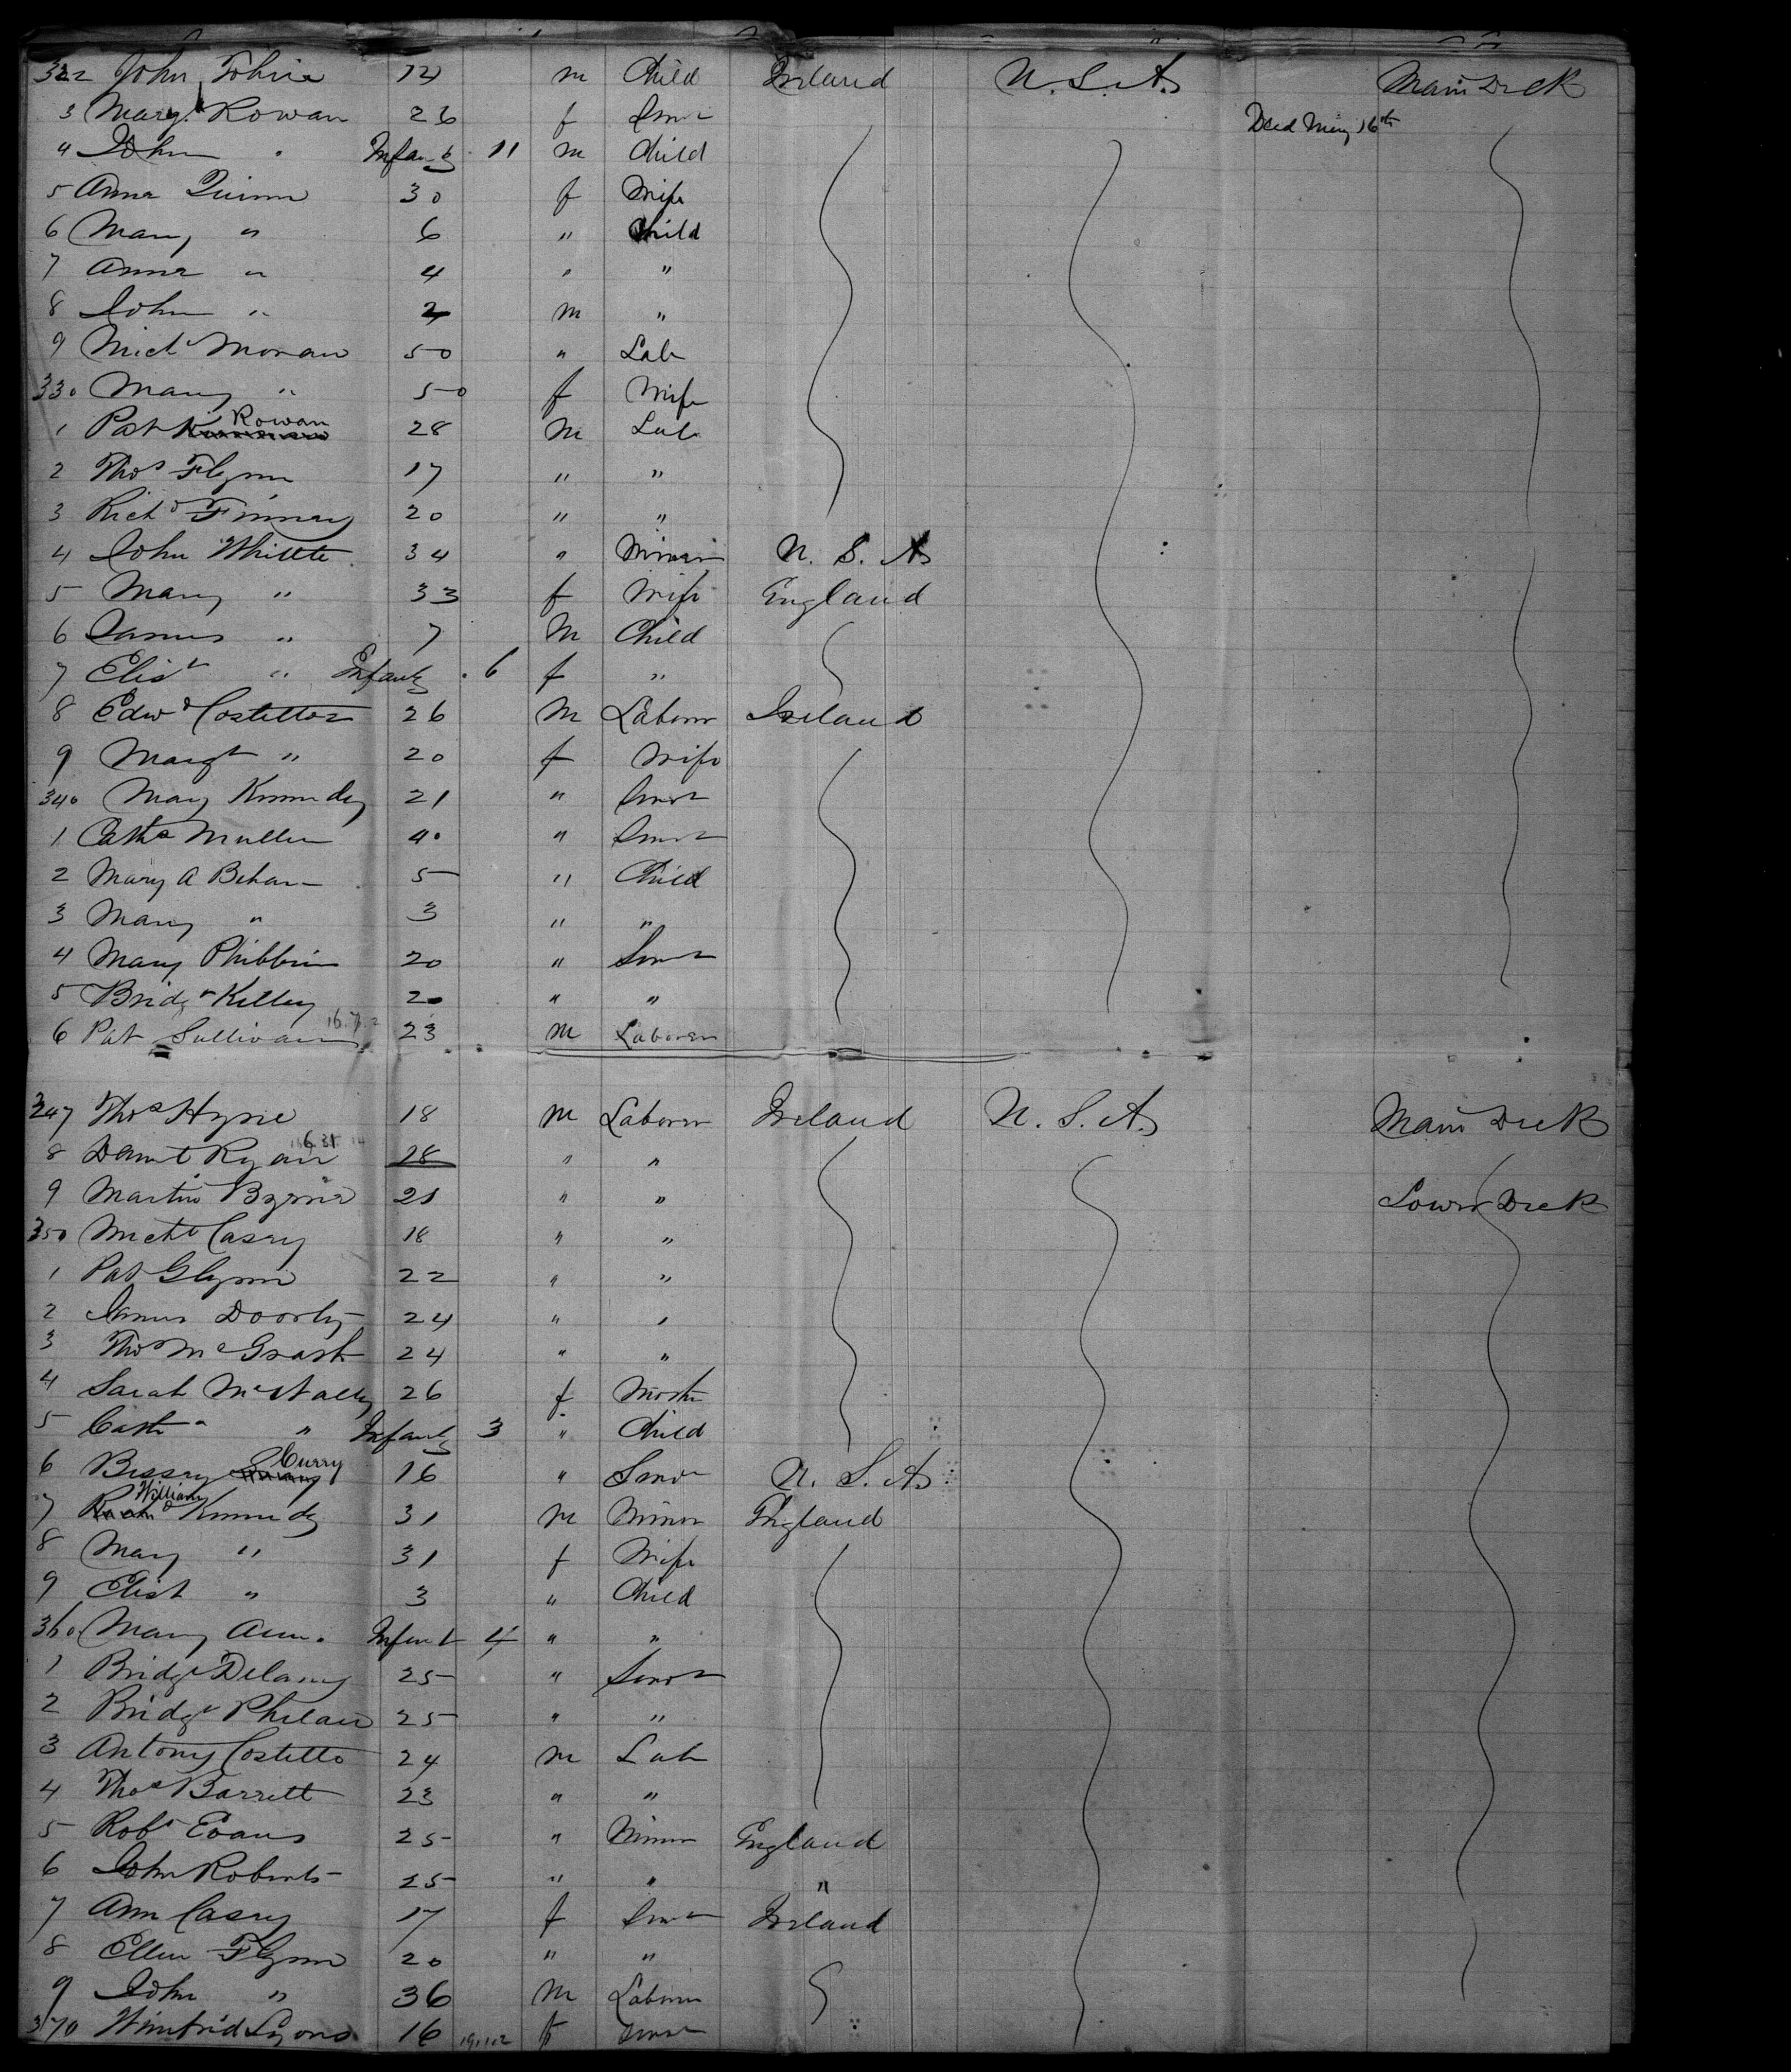 322 John Tobin 12 m Child Ireland U.S.A. Main Deck
3 Mary Rowan 26 f Servt Died May 16th
4 John " Infant 11 m Child
5 Anna Quinn 30 f Wife
6 Mary " 6 " Child
7 Anna " 4 " "
8 John " 2 m "
9 Michl Moran 50 " Lab
330 Mary " 50 f Wife
1 Pat Rowan 28 m Lab
2 Thos Flynn 17 " "
3 Richd Finnery 20 " "
4 John Whittle 34 " Miner U.S.A
5 Mary " 33 f Wife England
6 James " 7 m Child
7 Elist " Infant 6 f "
8 Edwd Costelloe 26 m Laborer Ireland
9 Margt " 20 f Wife
340 Mary Kennedy 21 " Servt
1 Cathe Mullen 40 " Servt
2 Mary A Behan 5 " Child
3 Mary " 3 " "
4 Mary Phibbin 20 " Servt
5 Bridgt Kelley 20 " "
6 Pat Sullivan 23 m Laborer
347 Thos Hyne 18 m Laborer Ireland U.S.A. Main Deck
8 Danl Ryan 28 " "
9 Martin Byrne 21 " " Lower Deck
350 Michl Casey 18 " "
1 Pat Glynn 22 " "
2 James Doorly 24 " "
3 Thos McGrath 24 " "
4 Sarah McNally 26 f Mother
5 Cath " Infant 3 " Child
6 Bessey Curry 16 " Servt U.S.A
7 William Kennedy 31 m Miner England
8 Mary " 31 f Wife
9 Elist " 3 " Child
360 Mary Ann Infant 4 " "
1 Bridgt Delaney 25 " Servt
2 Bridgt Phelan 25 " "
3 Antony Costello 24 m Lab
4 Thos Barrett 23 " "
5 Robt Evans 25 " Miner England
6 John Roberts 25 " " "
7 Ann Casey 17 f Servt Ireland
8 Ellen Flynn 20 " "
9 John " 36 m Laborer
370 Winifrid Lyons 16 f Servt